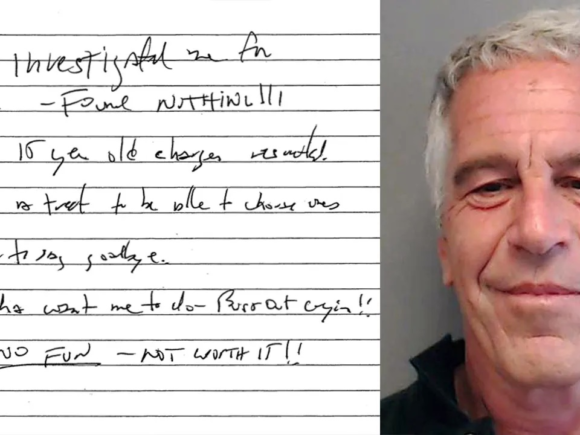 investigated me for
- Found NOTHING!!!
15 year old charges resulted.
a treat to be able to choose ones
to say goodbye.
want me to do - Burst out cryin!!
NO FUN - NOT WORTH IT!!